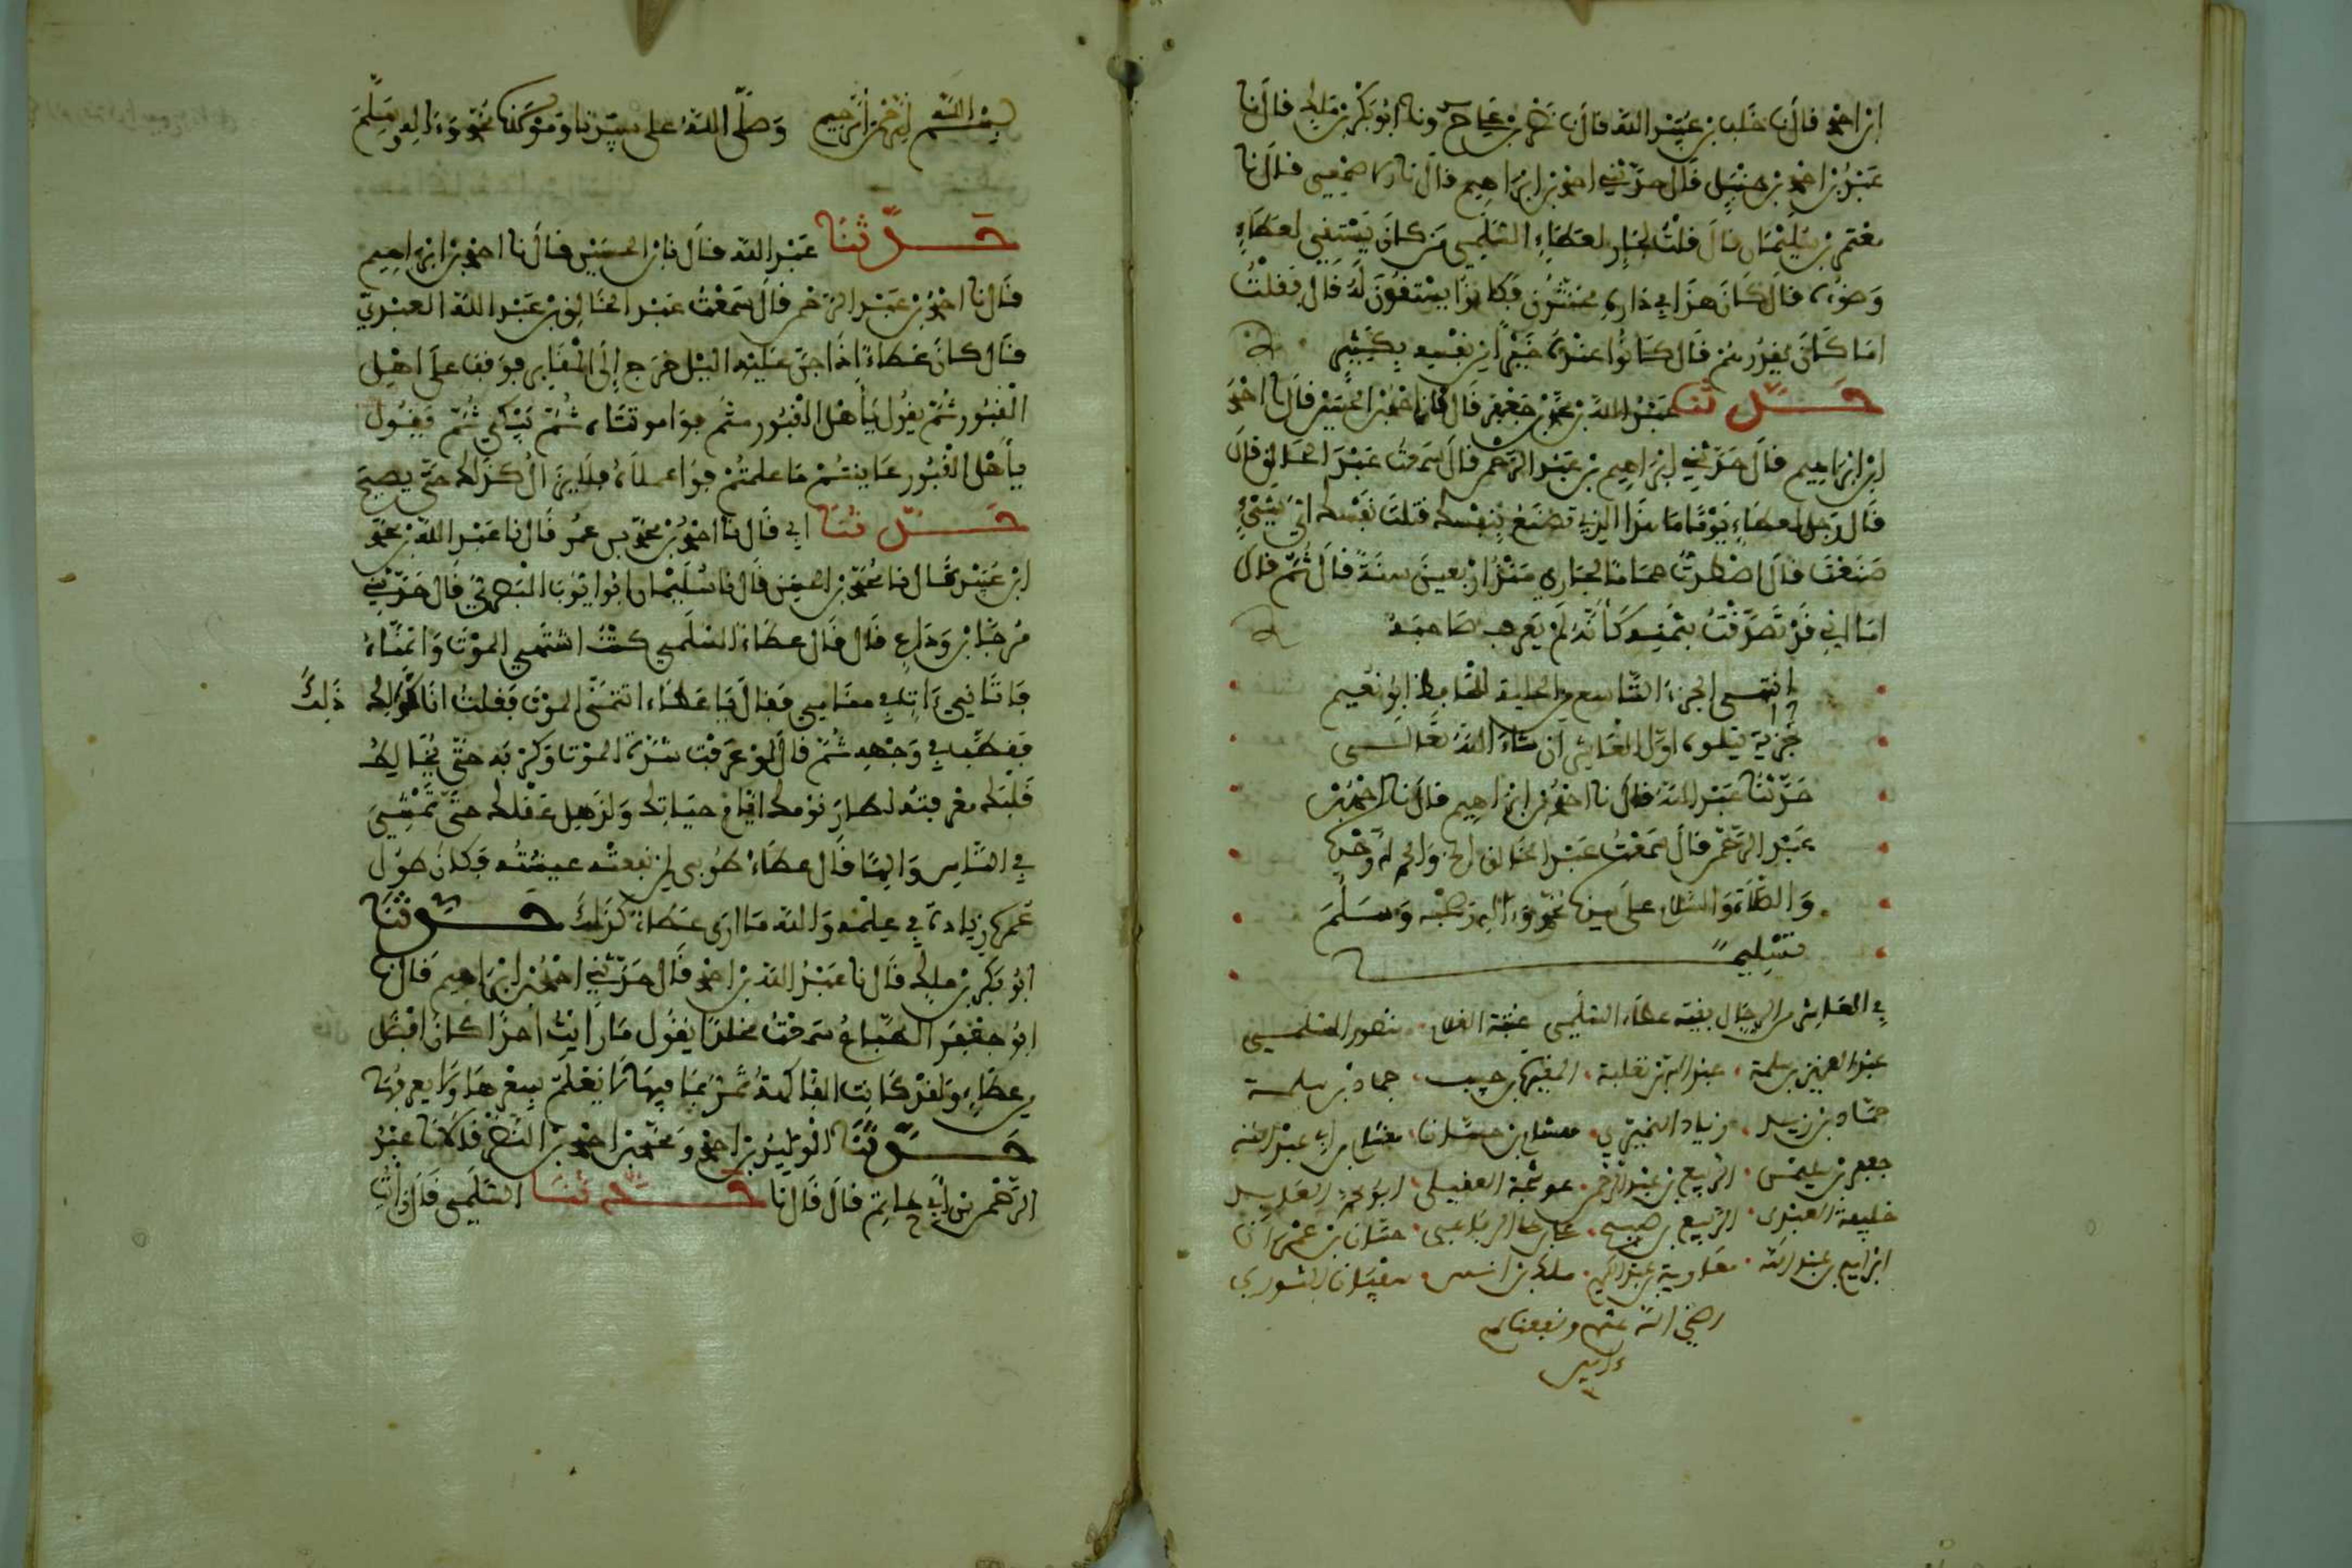 ابن احمد قال نا خلف بن عبيد الله قال نا نصر بن ح ونا ابو بكر بن ملك قال نا
عبد الله بن احمد بن حنبل قال حدثني احمد بن ابراهيم قال نا الاصمعي قال نا
معتمر بن سليمان قال قلت لجار لعطاء السليمي من كان يستقي لعطاء
وضوءه قال كان هذا في داره مخنثون فكانوا يستقون له قال فقلت
اما كان يقذرهم قال كانوا عنده خيرا من نفسه بكثير
حدثنا عبد الله بن محمد بن جعفر قال نا احمد بن الحسين قال نا احمد
ابن ابراهيم قال حدثني ابراهيم بن عبد الرحمن قال سمعت عبد الخالق قال
قال رجل لعطاء يوما ما هذا الذي تصنع بنفسك قتلت نفسك اي شيء
صنعت قال اصطدت حماما لجاري منذ اربعين سنة قال ثم قال
اما اني قد تصدقت بثمنه كانه لم يعرف صاحبه
انتهى الجزء التاسع من الحلية للحافظ ابو نعيم
تجزية يتلوه اول العاشر ان شاء الله تعالى
حدثنا عبد الله قال نا احمد بن ابراهيم قال نا احمد بن
عبد الرحمن قال سمعت عبد الخالق الخ والحمد لله وحده
والصلاة والسلام على سيدنا محمد وءاله وصحبه وسلم
تسليما
في العاشر من الرجال بقية عطاء السليمي عتبة الغلام منصور السلمي
عبد العزيز بن سلمة عبد الله بن ثعلبة المغيرة بن حبيب حماد بن سلمة
حماد بن زيد زياد النميري هشام بن حسان هشام بن ابي عبد الله
جعفر الربيع بن عبد الرحمن عوسجة العقيلي ابو
خليفة العبدي الربيع بن صبيح حسان بن
ابراهيم بن عبد الله معاوية بن عبد الكريم ملك بن انس سفيان الثوري
رضي الله عنهم ونفعنا بهم
ءامين
بسم الله الرحمن الرحيم وصلى الله على سيدنا ومولانا محمد وءاله وسلم
حدثنا عبد الله قال نا ابن الحسين قال نا احمد بن ابراهيم
قال نا احمد بن عبد الرحمن قال سمعت عبد الخالق بن عبد الله العبدي
قال كان عطاء اذا جن عليه اليل خرج إلى المقابر فوقف على اهل
القبور ثم يقول يأهل القبور متم فواموتاه ثم يبكي ثم فيقول
يأهل القبور عاينتم ما علمتم فواعملاه فلايزال كذلك حتى يصبح
حدثنا ابي قال نا احمد بن محمد بن عمر قال نا عبد الله بن محمد
ابن عبيد قال نا محمد بن الحسين قال نا سليمان ابو ايوب البصري قال حدثني
مرجا بن وداع قال قال عطاء السلمي كنت اشتهي الموت واتمناه
فاتاني ءات في منامي فقال يا عطاء اتتمنى الموت فقلت ذلك
فقطب في وجهه ثم قال لو عرفت شدة الموت وكربه حتى يخالط
قلبك معرفته لطار نومك ايام حياتك ولذهل عقلك حتى تمشي
في الناس والها قال عطاء طوبى لمن نفعته عيشته فكان طول
عمره زيادة في علمه والله ما ارى عطاء كذلك حدثنا
ابو بكر بن ملك قال نا عبد الله بن احمد قال حدثني احمد بن ابراهيم قال نا
ابو جعفر الصباغ سمعت مخلدا يقول ما رايت احدا كان افضل
من عطاء ولقد كانت الفاكهة تمر بما فيها لا يعلم بسعرها ولا يعرفها
حدثنا الوليد بن احمد ومحمد بن احمد بن النضر قالا نا عبد
الرحمن بن أبي حاتم قال قال نا حدثنا السلمي قال